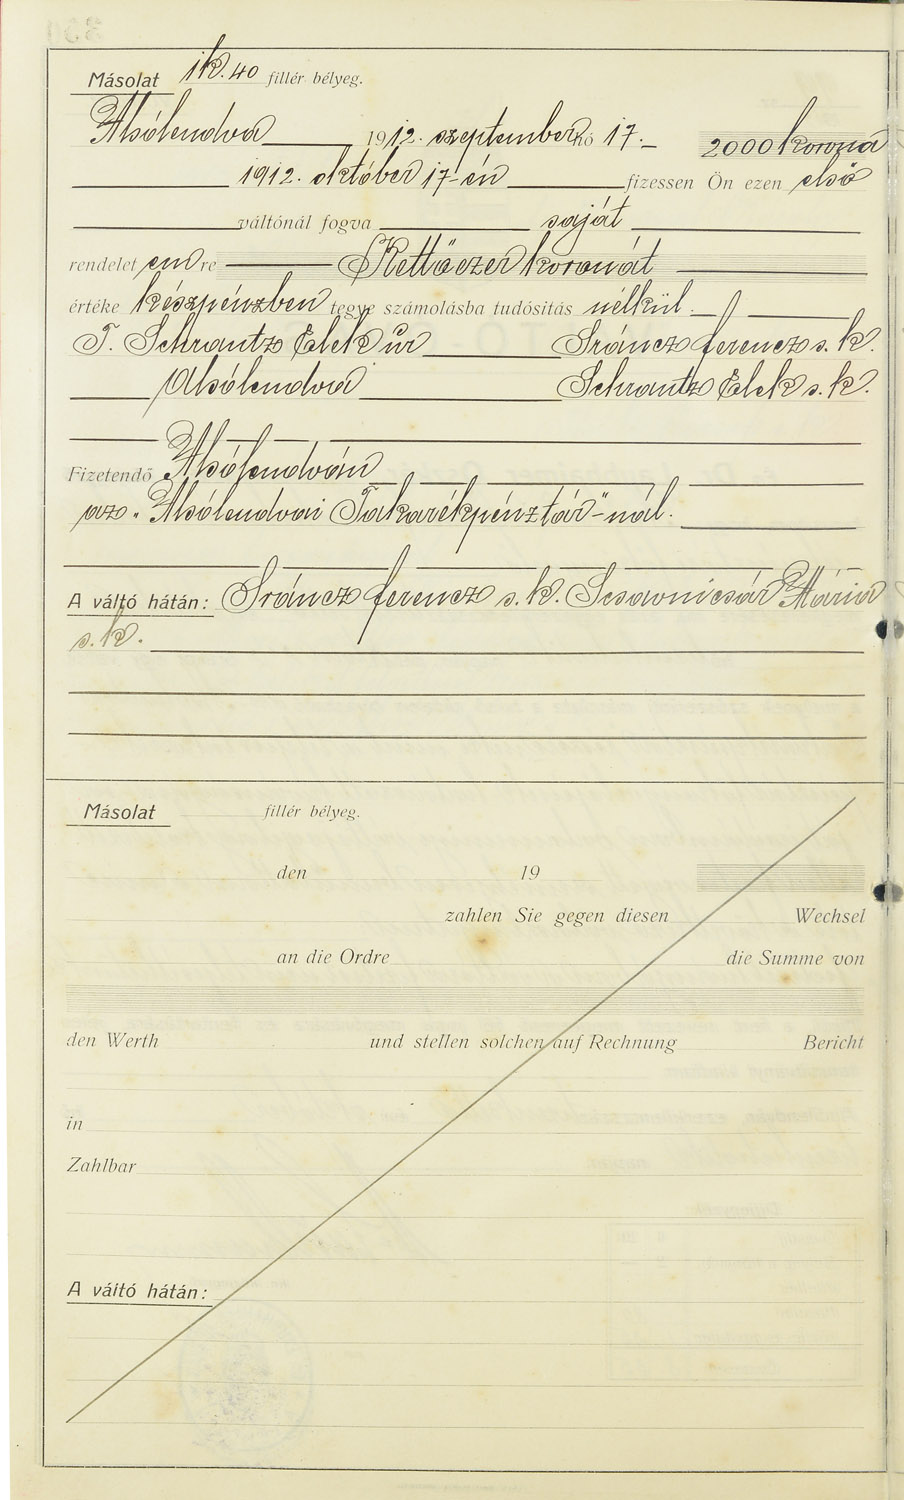 Másolat 1k. 40 fillér bélyeg.
Alsólendva 1912. szeptember hó 17. 2000 korona
1912. október 17-én fizessen Ön ezen első
váltónál fogva saját
rendelet em re Kettőezer koronát
értéke készpénzben tegye számolásba tudósítás nélkül.
T. Schrantz Elek úr Sráncz ferencz s. k.
Alsólendva Schrantz Elek s. k.
Fizetendő Alsólendván
az "Alsólendvai Takarékpénztár"-nál.
A váltó hátán: Sráncz ferencz s. k. Scsavnicsár Mária
s. k.
Másolat fillér bélyeg.
den 19
zahlen Sie gegen diesen Wechsel
an die Ordre die Summe von
den Werth und stellen solchen auf Rechnung Bericht
in
Zahlbar
A váltó hátán: